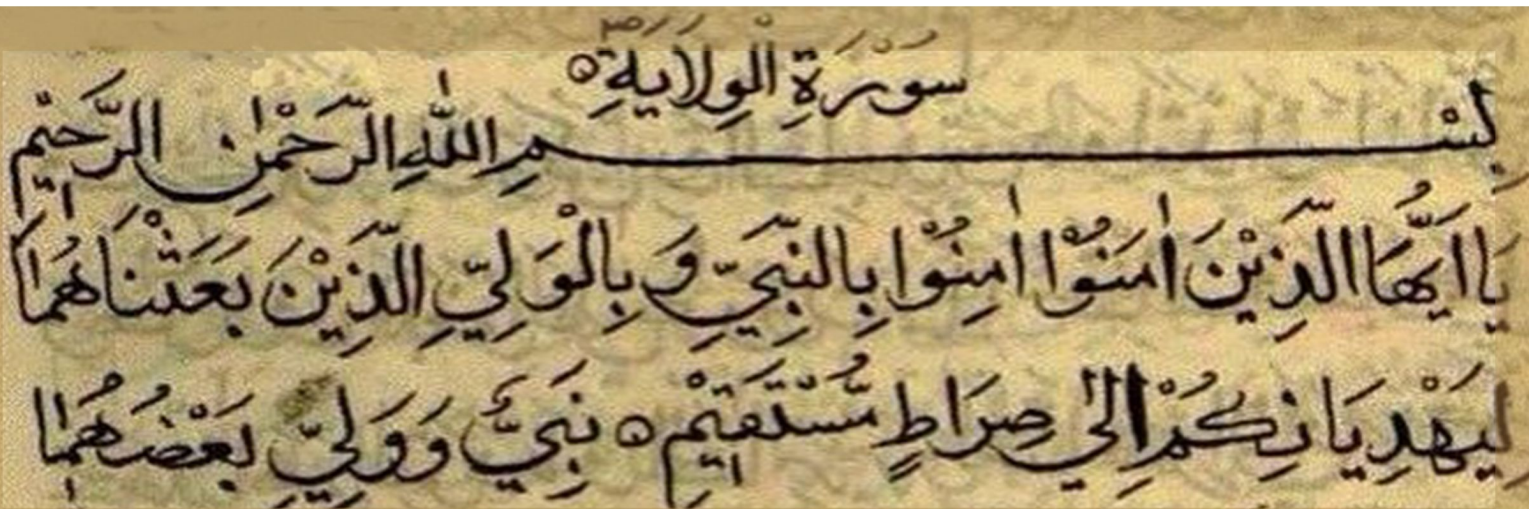 سُوْرَةِ الْوِلَايَةِ ۝
بِسْمِ اللّٰهِ الرَّحْمٰنِ الرَّحِيْمِ
يَا اَيُّهَا الَّذِيْنَ اٰمَنُوْا اٰمِنُوْا بِالنَّبِيِّ وَ بِالْوَلِيِّ الَّذِيْنَ بَعَثْنَاهُمَا
لِيَهْدِيَانِكُمْ اِلٰى صِرَاطٍ مُّسْتَقِيْمٍ ۝ نَبِيٌّ وَوَلِيٌّ بَعْضُهُمَا